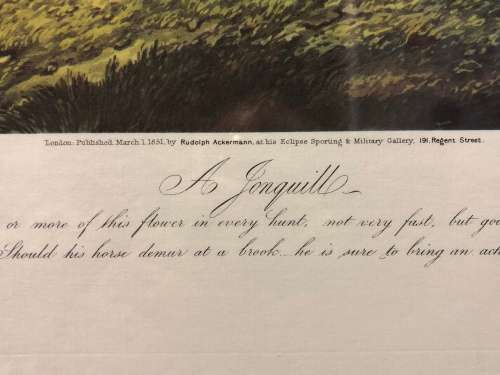 London: Published March 1, 1851, by Rudolph Ackermann, at his Eclipse Sporting & Military Gallery, 191, Regent Street.
A Jonquill
or more of this flower in every hunt, not very fast, but
Should his horse demur at a brook... he is sure to bring an